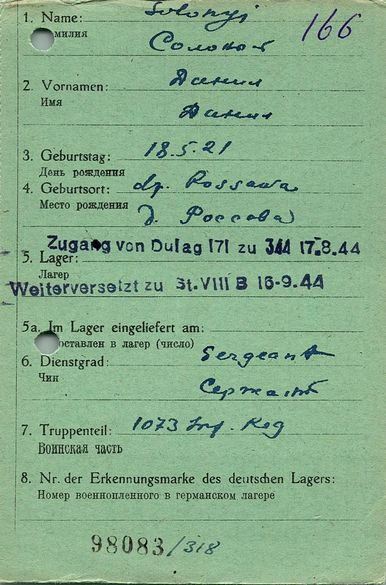 1. Name: Solonyj 166
милия Солоный
2. Vornamen: Данил
Имя Данил
3. Geburtstag: 18.5.21
День рождения
4. Geburtsort: dp. Rossawa
Место рождения д. Россова
Zugang von Dulag 171 zu 344 17.8.44
5. Lager:
Лагер
Weiterversetzt zu St. VIII B 16-9.44
5a. Im Lager eingeliefert am:
оставлен в лагер (число)
6. Dienstgrad: Sergeant
Чин Сержант
7. Truppenteil: 1073 Inf. Reg
Воинская часть
8. Nr. der Erkennungsmarke des deutschen Lagers:
Номер военнопленного в германском лагере
98083/318